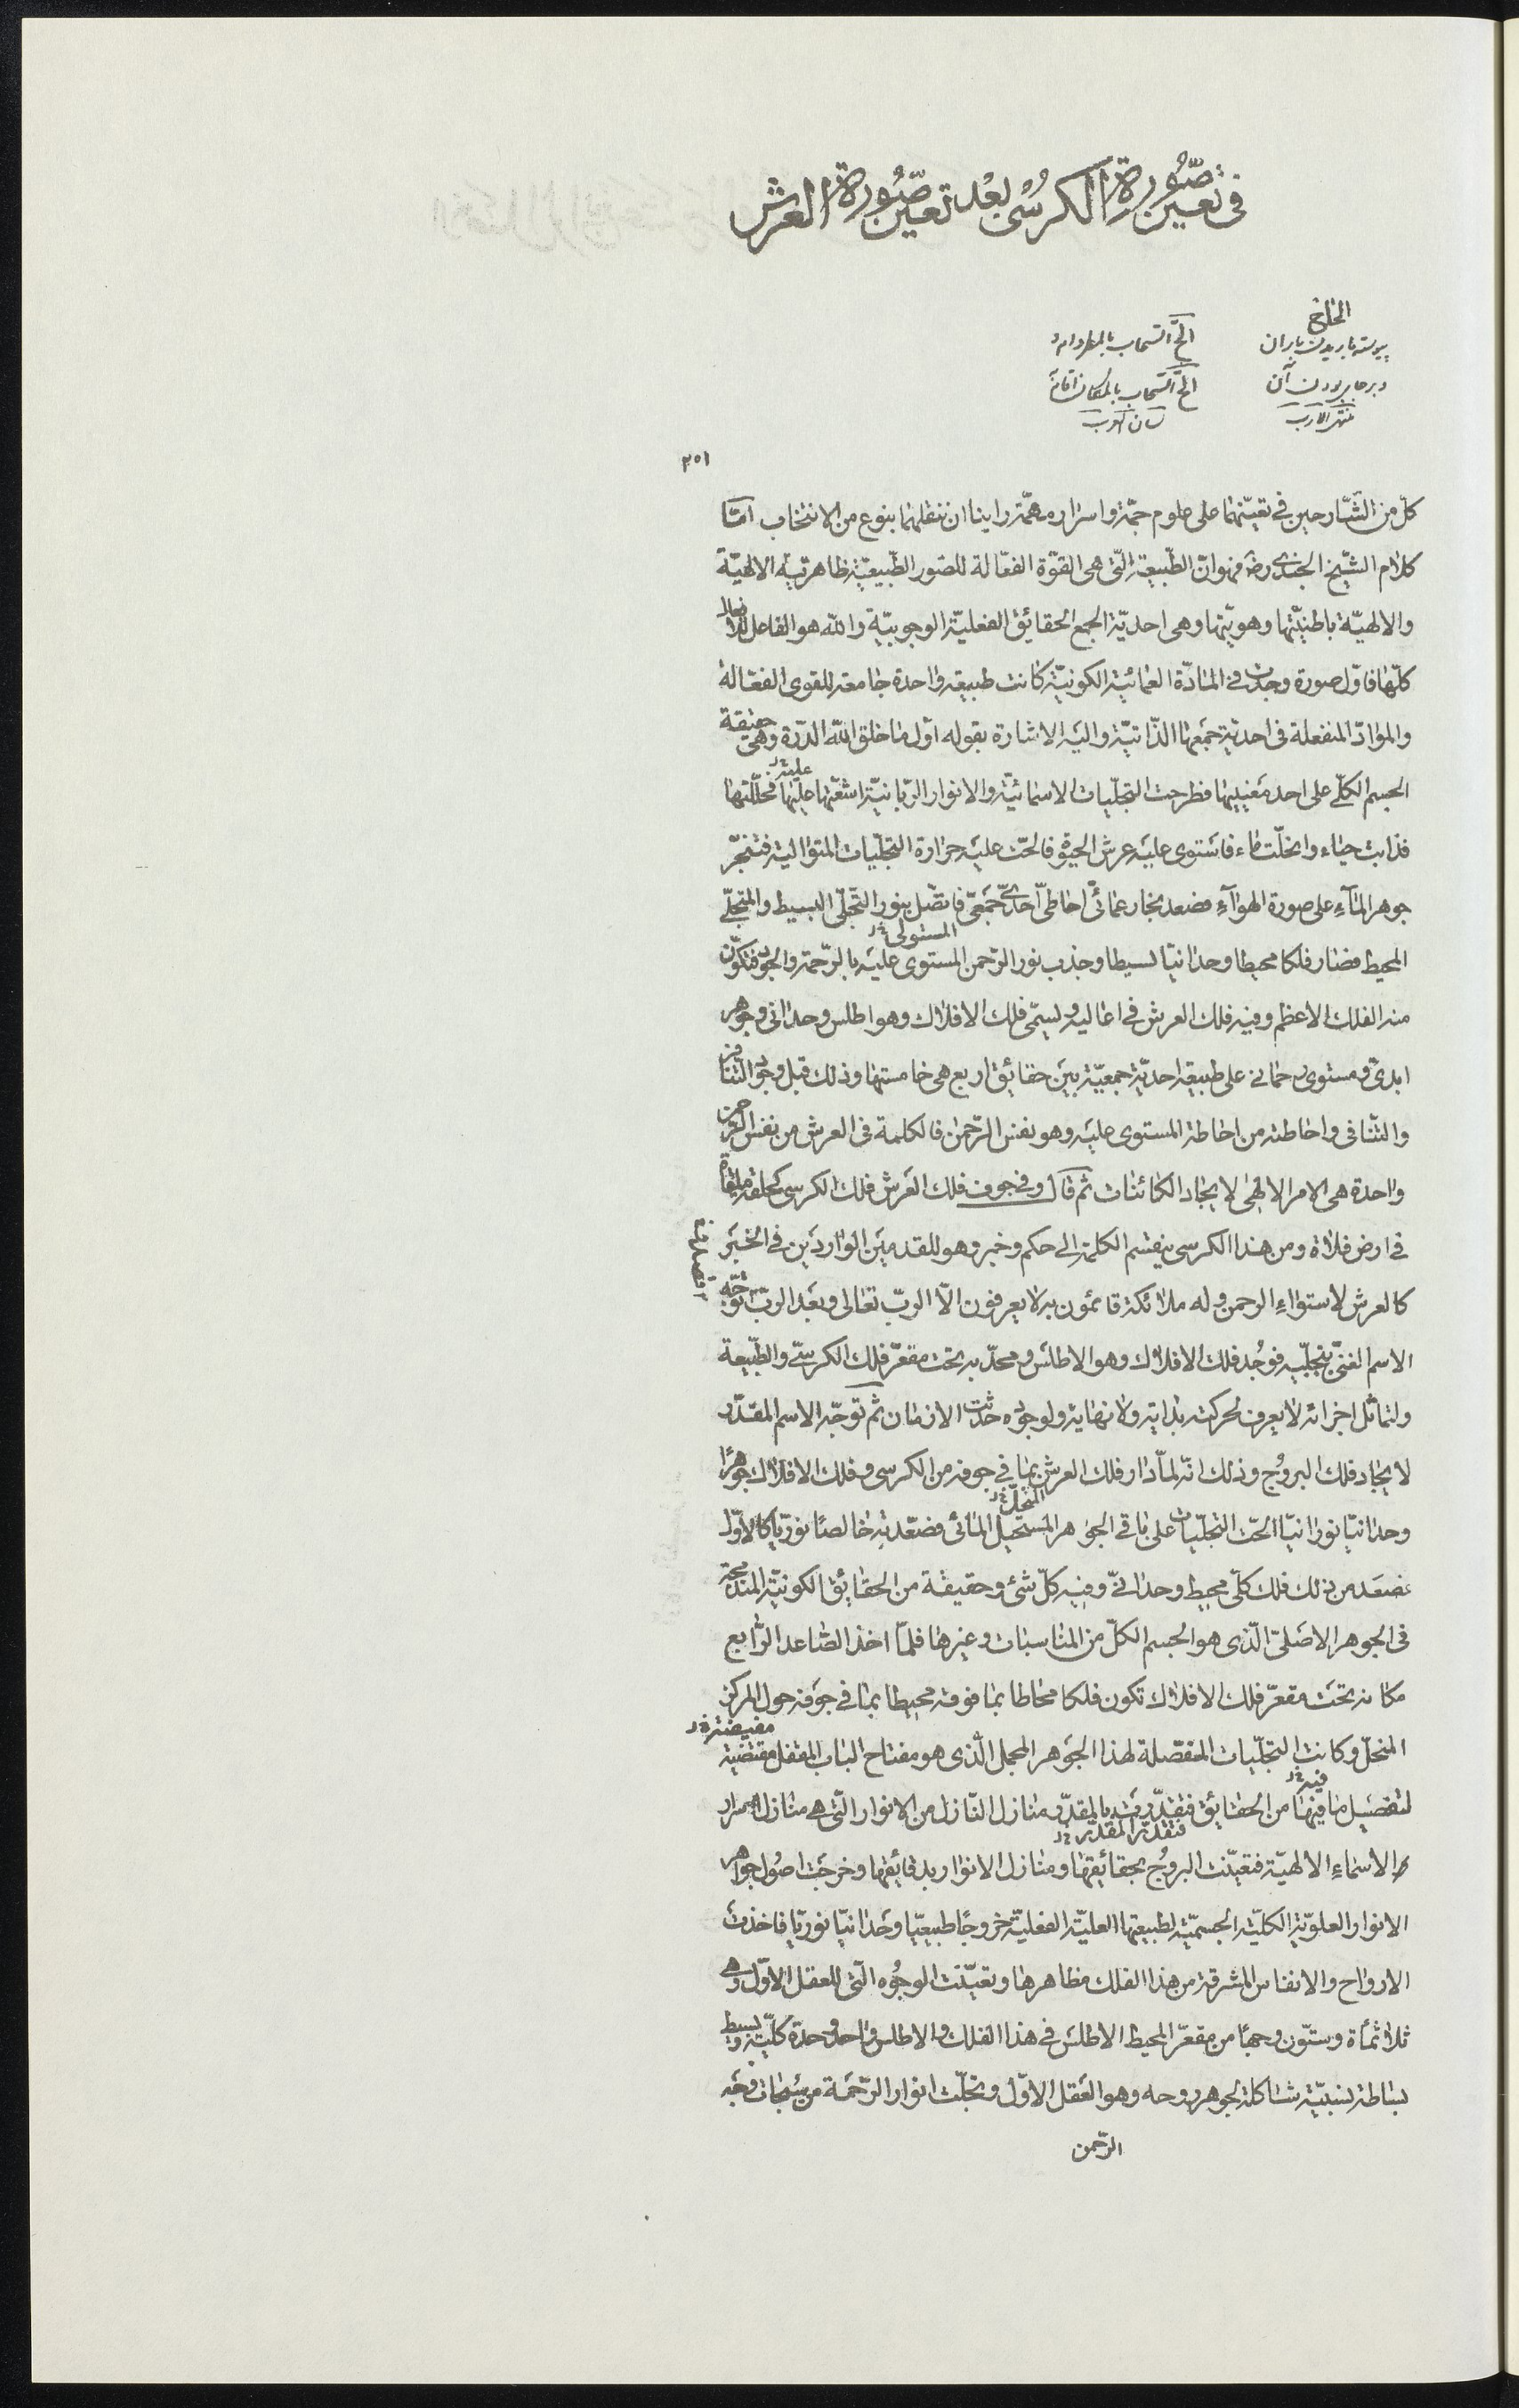 فى تعيين صّورة الكرسُى بعْد تعيّن صّورة العرش
الحلخ
پيوسته باريدن باران
الحّ السّحاب بالمطر دام
و برجاى بودن آن
الحّ السّحاب بالمكان اقام
منتهى الارب
لسان العرب
٢٥١
كلّ من الشّارحين فى تعيّنهما على علوم جمّة و اسرار مهمّة راينا ان ننقلهما بنوع من الانتخاب امّا
كلام الشّيخ الجندى رضه فهو انّ الطّبيعة الّتى هى القوّة الفعّالة للصّور الطّبيعيّة ظاهريّة الالهيّة
والالهيّة باطنيّتها و هويّتها و هى احديّة الجمع الحقائق الفعليّة الوجوبيّة والله هو الفاعل للافعال
كلّها فاوّل صورة وجدت فى المادّة العمائيّة الكونيّة كانت طبيعة واحدة جامعة للقوى الفعّالة
والموادّ المنفعلة فى احديّة جمعها الذّاتيّة واليه الاشارة بقوله اوّل ما خلق الله الدّرّة وهى حقيقة
الجسم الكلّى على احد معنييها فطرحت التجلّيات الاسمائيّة والانوار الرّبّانيّة اشعّتها عليها فحلّلتها
عليه خ ل
فذابت حياء وانحلّت ماء فاستوى عليه عرش الحيوة فالحّت عليه حرارة التجلّيات المتوالية فتبخّر
جوهر المآء على صورة الهوآء فصعد بخار عمائىّ احاطىّ احدىّ جمعىّ فاتّصل بنور التّجلّى البسيط والمتجلّى
المحيط فصار فلكا محيطا وحدانيّا بسيطا وجذب نور الرّحمن المستوى عليه بالرّحمة والجود فتكوّن
المستولى خ ل
منه الفلك الاعظم وفيه فلك العرش فى اعاليه ويسمّى فلك الافلاك وهو اطلس وحدانى وجوهر
ابدىّ ومستوى رحمانى على طبيعة احديّة جمعيّة بين حقائق اربع هى خامستها وذلك قبل وجود التّنافر
والتّنافى واحاطته من احاطة المستوى عليه وهو نفس الرّحمن فالكلمة فى العرش من نفس الرّحمن
واحدة هى الامر الالهى لايجاد الكائنات ثمّ قال وفى جوف فلك العرش فلك الكرسى كحلقة ملقاة
فى ارض فلاة ومن هذا الكرسى ينقسم الكلمة الى حكم وخبر وهو للقدمين الواردين فى الخبر
كالعرش لاستواء الرحمن وله ملائكة قائمون به لا يعرفون الّا الربّ تعالى وبعد الربّ توجّه
الاسم الغنىّ بتجلّيه فوُجد فلك الافلاك وهو الاطلس ومحدّبه تحت مقعّر فلك الكرسىّ والطّبيعة
ولتماثل اجزائه لا يعرف لحركته بداية ولا نهاية ولوجوده حدثت الازمان ثمّ توجّه الاسم المقدّر
لايجاد فلك البروُج وذلك انّه لمّا دار فلك العرش بما فى جوفه من الكرسى وفلك الافلاك جوهرًا
وحدانيّا نورانيّا الحّت التجلّيات على باقى الجوهر المستحيل المائى فصعّدته خالصًا نوريّا كالاوّل
المنحلّ خ ل
فصعد من ذلك فلك كلّى محيط وحدانىّ وفيه كلّ شئ وحقيقة من الحقائق الكونيّة المندمجة
فى الجوهر الاصلىّ الّذى هو الجسم الكلّ من المناسبات وغيرها فلمّا اخذ الصّاعد الرّابع
مكانه تحت مقعّر فلك الافلاك تكون فلكا محاطا بما فوقه محيطا بما فى جوفه حول المركز
المنحلّ وكانت التجلّيات المفصّلة لهذا الجوهر المجمل الّذى هو مفتاح الباب المقفل مقتضية
مفيضة خ ل
لتفصيل ما فيها من الحقائق فتقدّرت بالمقدّر منازل النّازل من الانوار الّتى هى منازل اسرار
فيه خ ل
فتقدّر المقدّر خ ل
الاسماء الالهيّة فتعيّنت البروُج بحقائقها ومنازل الانوار بدقائقها وخرجت اصُول جواهر
الانوار العلويّة الكليّة الجسميّة لطبيعتها العليّة الفعليّة خروجًا طبيعيّا وحدانيّا نوريّا فاخذت
الارواح والانفاس المشرقة من هذا الفلك مظاهرها وتعيّنت الوجُوه الّتى للعقل الاوّل وهى
ثلاثمأة وستّون وجهًا من مقعّر المحيط الاطلس فى هذا الفلك والاطلس واحد وحدة كلّيّة وبسيط
بساطة نسبيّة شاكلة لجوهر روحه وهو العقل الاوّل وتجلّت انوار الرّحمة من سبحات وجه
الرّحمن